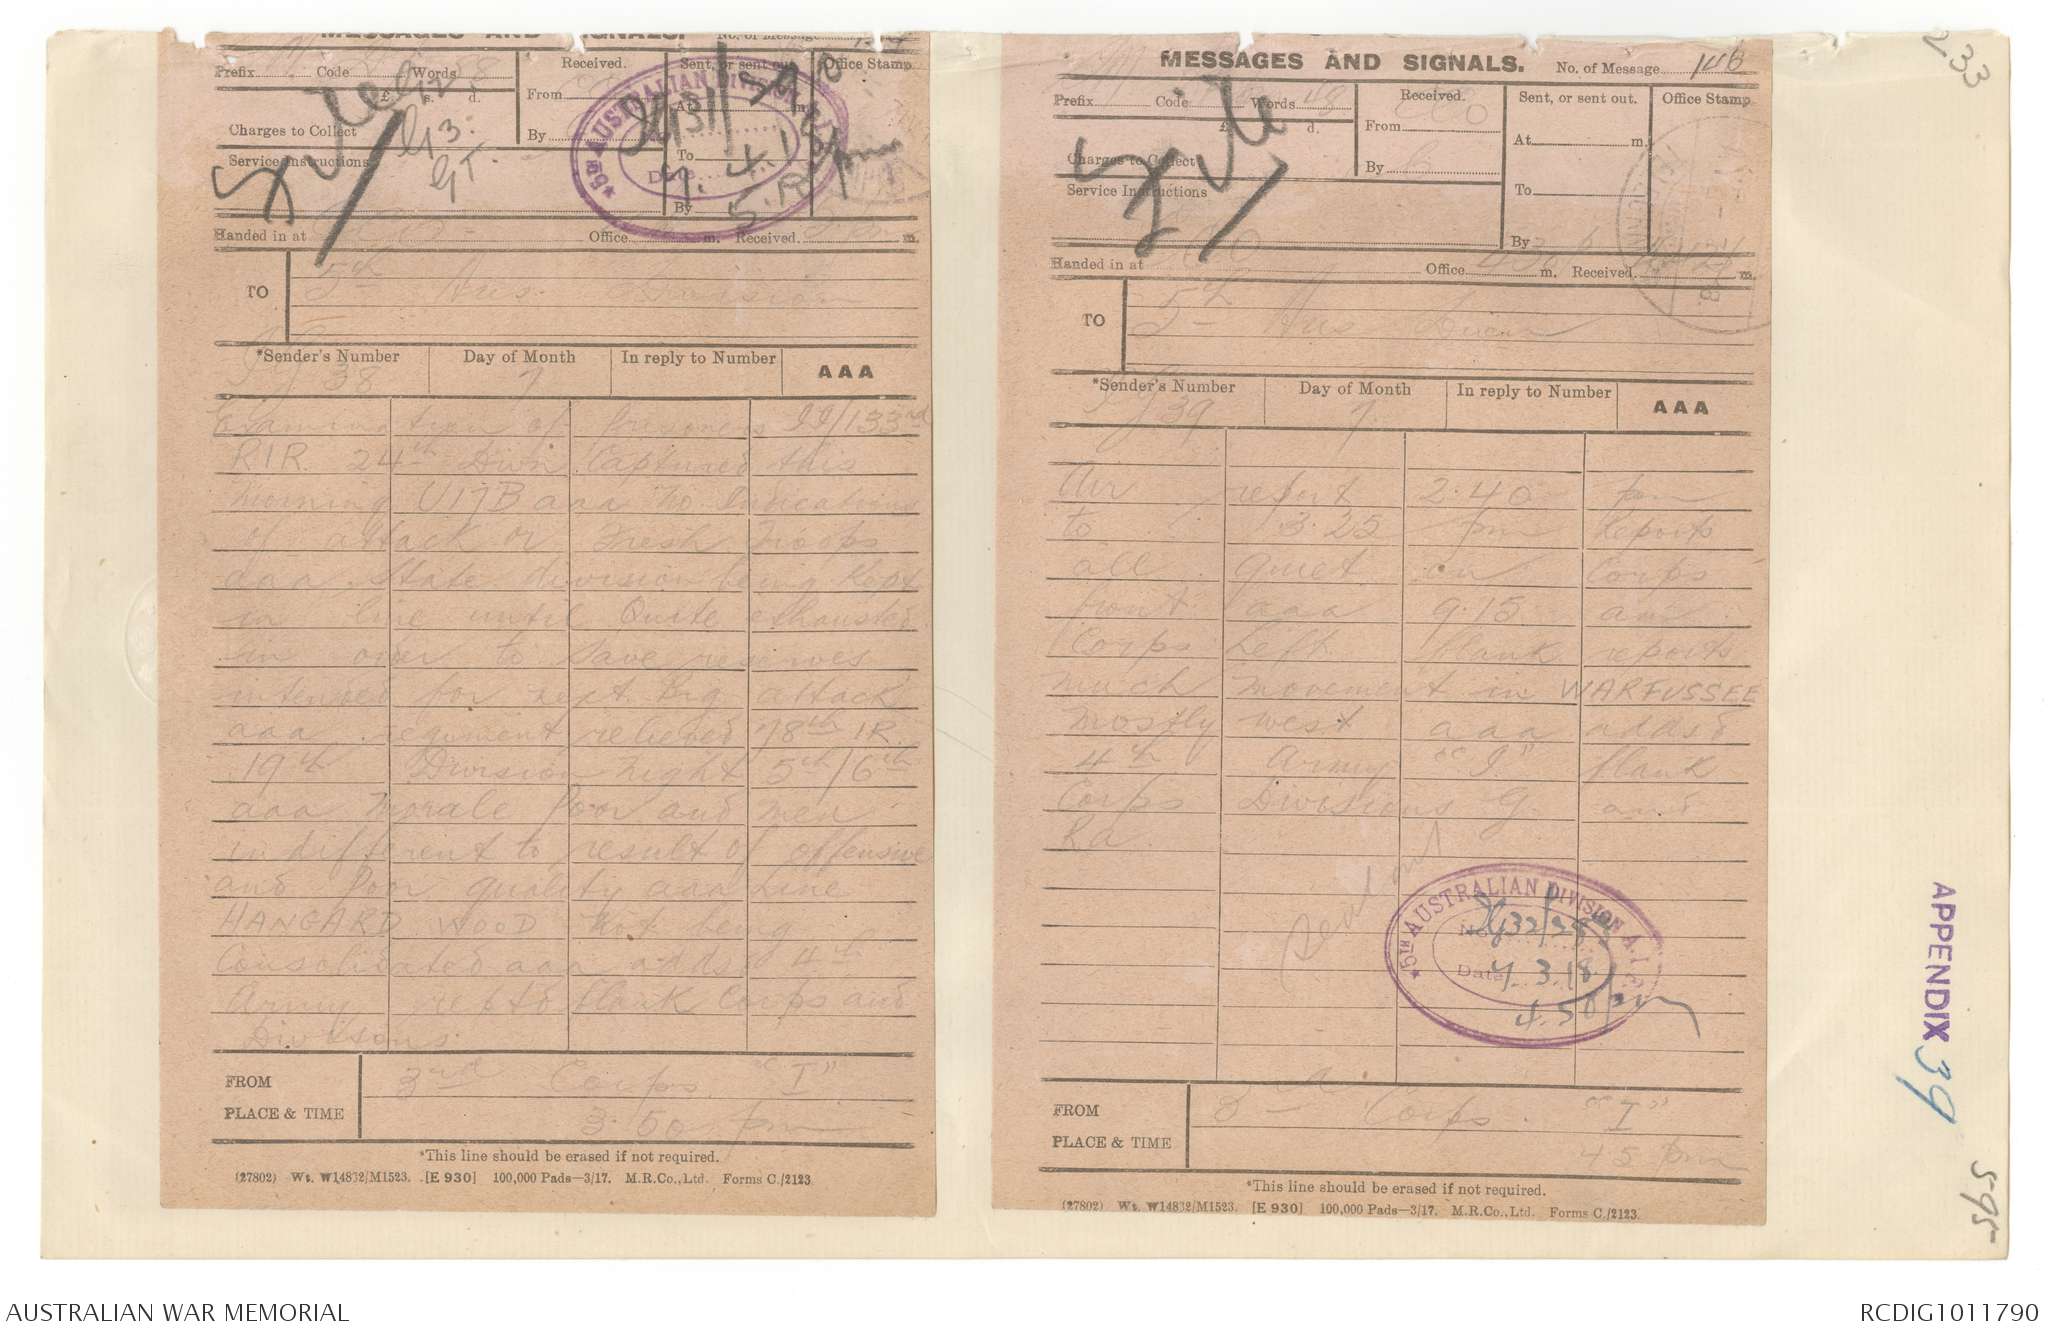 MESSAGES AND SIGNALS. No. of Message
Prefix Code Words
Received.
Sent, or sent out
Office Stamp
£ s. d.
From
At m.
G2
G3.
GT.
Charges to Collect
By
To
Service Instructions
By
5TH AUSTRALIAN DIVISION
Date 7.4.1
Handed in at Office m. Received. m.
TO
5th Aus. Division
*Sender's Number
Day of Month
In reply to Number
AAA
IG 38
7
Examination of prisoners II/133rd
RIR. 24th Divn Captured this
morning U17B aaa No indications
of attack or Fresh Troops
aaa State division being kept
in line until Quite exhausted
in order to save reserves
intended for next Big attack
aaa regiment relieved 78th IR.
19th Division night 5th/6th
aaa Morale Poor and men
indifferent to result of offensive
and Poor quality aaa Line
HANGARD WOOD not being
Consolidated aaa adds 4th
Army reptd flank Corps and
Divisons
FROM
PLACE & TIME
3rd Corps "I"
3.50 pm
*This line should be erased if not required.
(27802) Wt. W14832/M1523. [E 930] 100,000 Pads—3/17. M.R.Co., Ltd. Forms C./2123.
MESSAGES AND SIGNALS. No. of Message
Prefix Code Words
Received.
Sent, or sent out.
Office Stamp
£ d.
From
At m.
Charges to Collect
By
To
Service Instructions
By
Handed in at Office m. Received. m.
TO
5th Aus Divn
*Sender's Number
Day of Month
In reply to Number
AAA
IG 39
7.
Air report 2.40 pm
to 3.25 pm Reports
all quiet on Corps
front aaa 9.15 am
Corps Left flank reports
much movement in WARFUSSEE
mostly west aaa adds d
4th Army "I" flank
Corps Divisions G. and
Ra.
5TH AUSTRALIAN DIVISION A.I.F.
No.
Date 7.3.18
4.50 pm
FROM
PLACE & TIME
3rd Corps. "I"
45 pm
*This line should be erased if not required.
(27802) Wt. W14832/M1523. [E 930] 100,000 Pads—3/17. M.R.Co., Ltd. Forms C./2123.
233
APPENDIX 39
595
AUSTRALIAN WAR MEMORIAL
RCDIG1011790